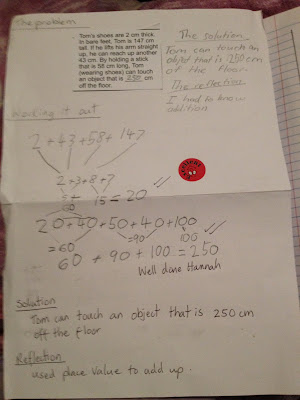 The problem
Tom's shoes are 2 cm thick.
In bare feet, Tom is 147 cm
tall. If he lifts his arm straight
up, he can reach up another
43 cm. By holding a stick
that is 58 cm long, Tom
(wearing shoes) can touch
an object that is 250 cm
off the floor.
The solution
Tom can touch an
object that is 250 cm
of the floor.
The reflection
I had to know
addition
Working it out
2 + 43 + 58 + 147
2 + 3 + 8 + 7
5 15 = 20
20 + 40 + 50 + 40 + 100
= 60 = 90 100
60 + 90 + 100 = 250
Well done Hannah
Solution
Tom can touch an object that is 250 cm
off the floor
Reflection
used place value to add up.